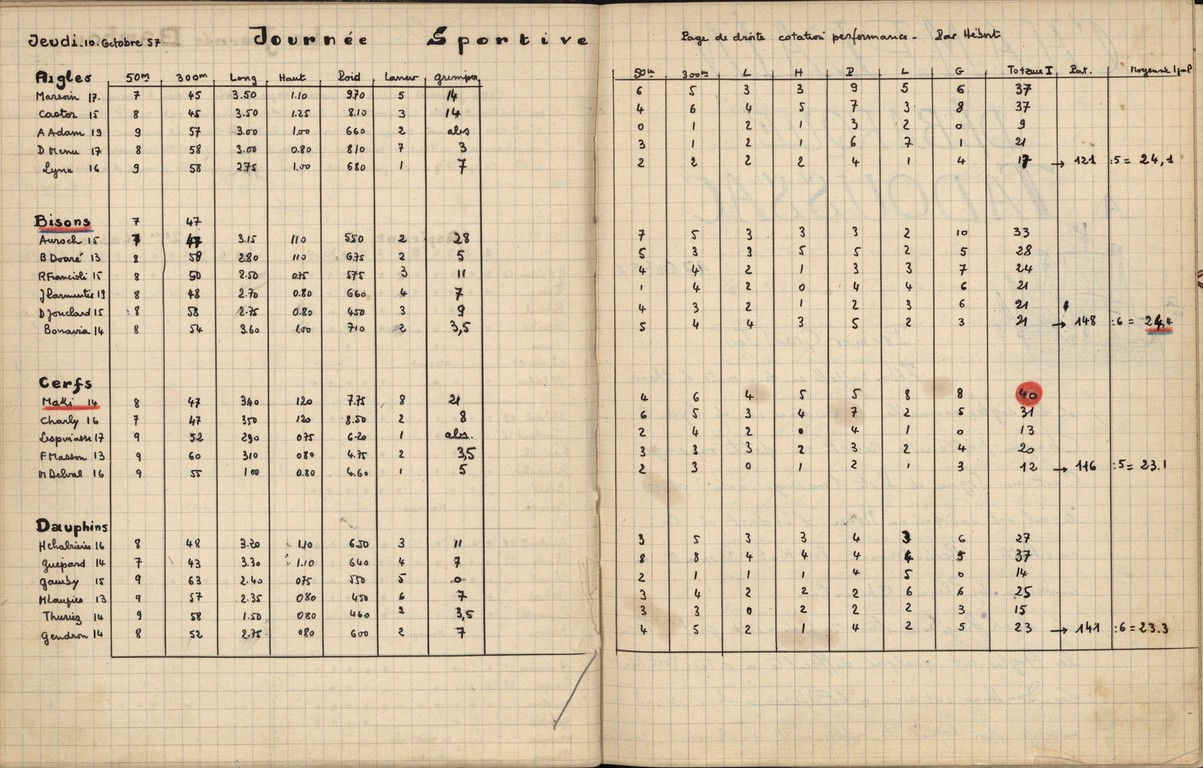 Jeudi.10.Octobre 57 Journée Sportive
Aigles 50m 300m Long Haut Poid Lancer grimper
Marsoin 17. 7 45 3.50 1.10 970 5 14
Castor 15 8 45 3.50 1.25 8.10 3 14
A Adam 19 9 57 3.00 1.00 660 2 abs
D Menu 17 8 58 3.00 0.80 810 7 3
Lynx 16 9 58 275 1.00 680 1 7
Bisons 7 47
Auroch 15 7 47 3.15 110 550 2 28
B Doaré 13 8 58 280 110 675 2 5
R Francioli 15 8 50 2.50 075 575 3 11
J Larmentier 19 8 48 2.70 0.80 660 4 7
D Jouclard 15 8 58 2.75 0.80 450 3 9
Bonavia 14 8 54 3.60 1.00 710 2 3,5
Cerfs
Maki 14 8 47 340 120 7.75 8 21
Charly 16 7 47 350 120 8.50 2 8
Lespinasse 17 9 52 290 075 6.20 1 abs.
F Masson 13 9 60 310 080 4.75 2 3,5
M Delval 16 9 55 100 0.80 4.60 1 5
Dauphins
H chabrieres 16 8 48 3.20 1.10 6.50 3 11
guepard 14 7 43 3.30 1.10 640 4 7
15 9 63 2.40 075 550 5 0
M Laupies 13 9 57 2.35 080 450 6 7
Thuriez 14 9 58 1.50 080 460 2 3,5
Gendron 14 8 52 2.75 080 600 2 7
Page de droite cotation performance - Par Hébert
50m 300m L H P L G Totaux I Pat. Moyenne
6 5 3 3 9 5 6 37
4 6 4 5 7 3 8 37
0 1 2 1 3 2 0 9
3 1 2 1 6 7 1 21
2 2 2 2 4 1 4 17 → 121 :5 = 24,1
7 5 3 3 3 2 10 33
5 3 3 5 5 2 5 28
4 4 2 1 3 3 7 24
1 4 2 0 4 4 6 21
4 3 2 1 2 3 6 21
5 4 4 3 5 2 3 21 → 148 :6 = 24,4
4 6 4 5 5 8 8 40
6 5 3 4 7 2 5 31
2 4 2 0 4 1 0 13
3 3 3 2 3 2 4 20
2 3 0 1 2 1 3 12 → 116 :5 = 23.1
3 5 3 3 4 3 6 27
8 8 4 4 4 4 5 37
2 1 1 1 4 5 0 14
3 4 2 2 2 6 6 25
3 3 0 2 2 2 3 15
4 5 2 1 4 2 5 23 → 141 :6 = 23.3